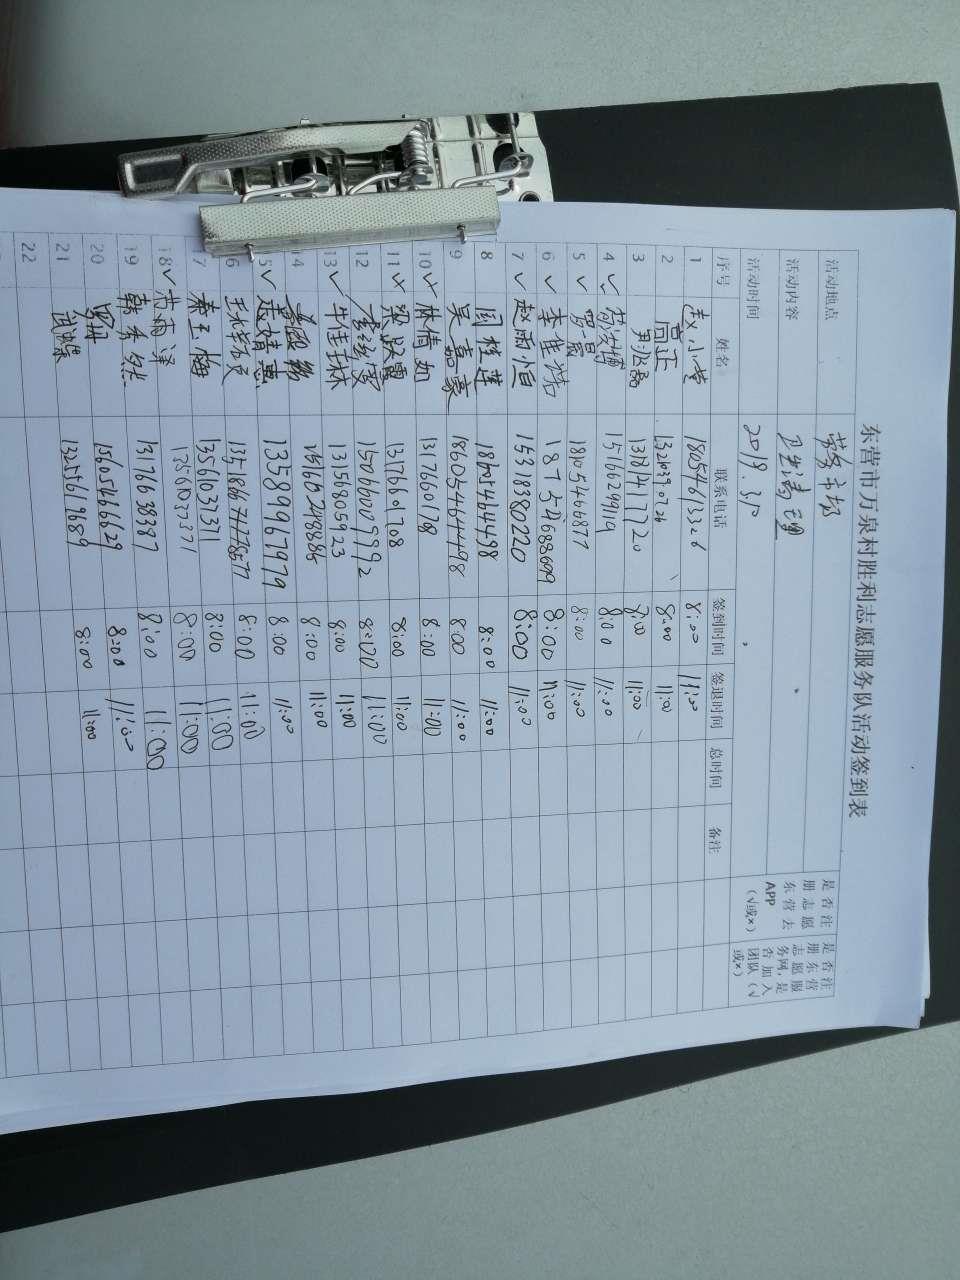 东营市万泉村胜利志愿服务队活动签到表
活动地点 劳务市场
活动内容 卫生清理
活动时间 2019.3.10
序号 姓名 联系电话 签到时间 签退时间 总时间 备注 是否注册志愿东营去APP（√或×） 是否注册东营志愿服务网，是否加入团队（√或×）
1 赵小雪 18054613326 8:00 11:00
2 8:00 11:00
3 13181411720 8:00 11:00
4 ✓ 15166299119 8:00 11:00
5 ✓ 18105466877 8:00 11:00
6 ✓ 李佳浩 18754688609 8:00 11:00
7 ✓ 赵雨恒 15318380220 8:00 11:00
8 闫桂莲 18605464498 8:00 11:00
9 吴嘉豪 18605464498 8:00 11:00
10 ✓ 林倩如 13176601708 8:00 11:00
11 ✓ 梁跃霞 13176601708 8:00 11:00
12 15066000992 8:00 11:00
13 ✓ 牛佳林 13156805923 8:00 11:00
14 8:00 11:00
15 ✓ 赵婧惠 13589967979 8:00 11:00
16 8:00 11:00
17 秦玉梅 13561037371 8:00 11:00
18 ✓ 13561037371 8:00 11:00
19 韩秀然 13176638387 8:00 11:00
20 15605466629 8:00 11:00
21 武蝶 13255619689 8:00 11:00
22